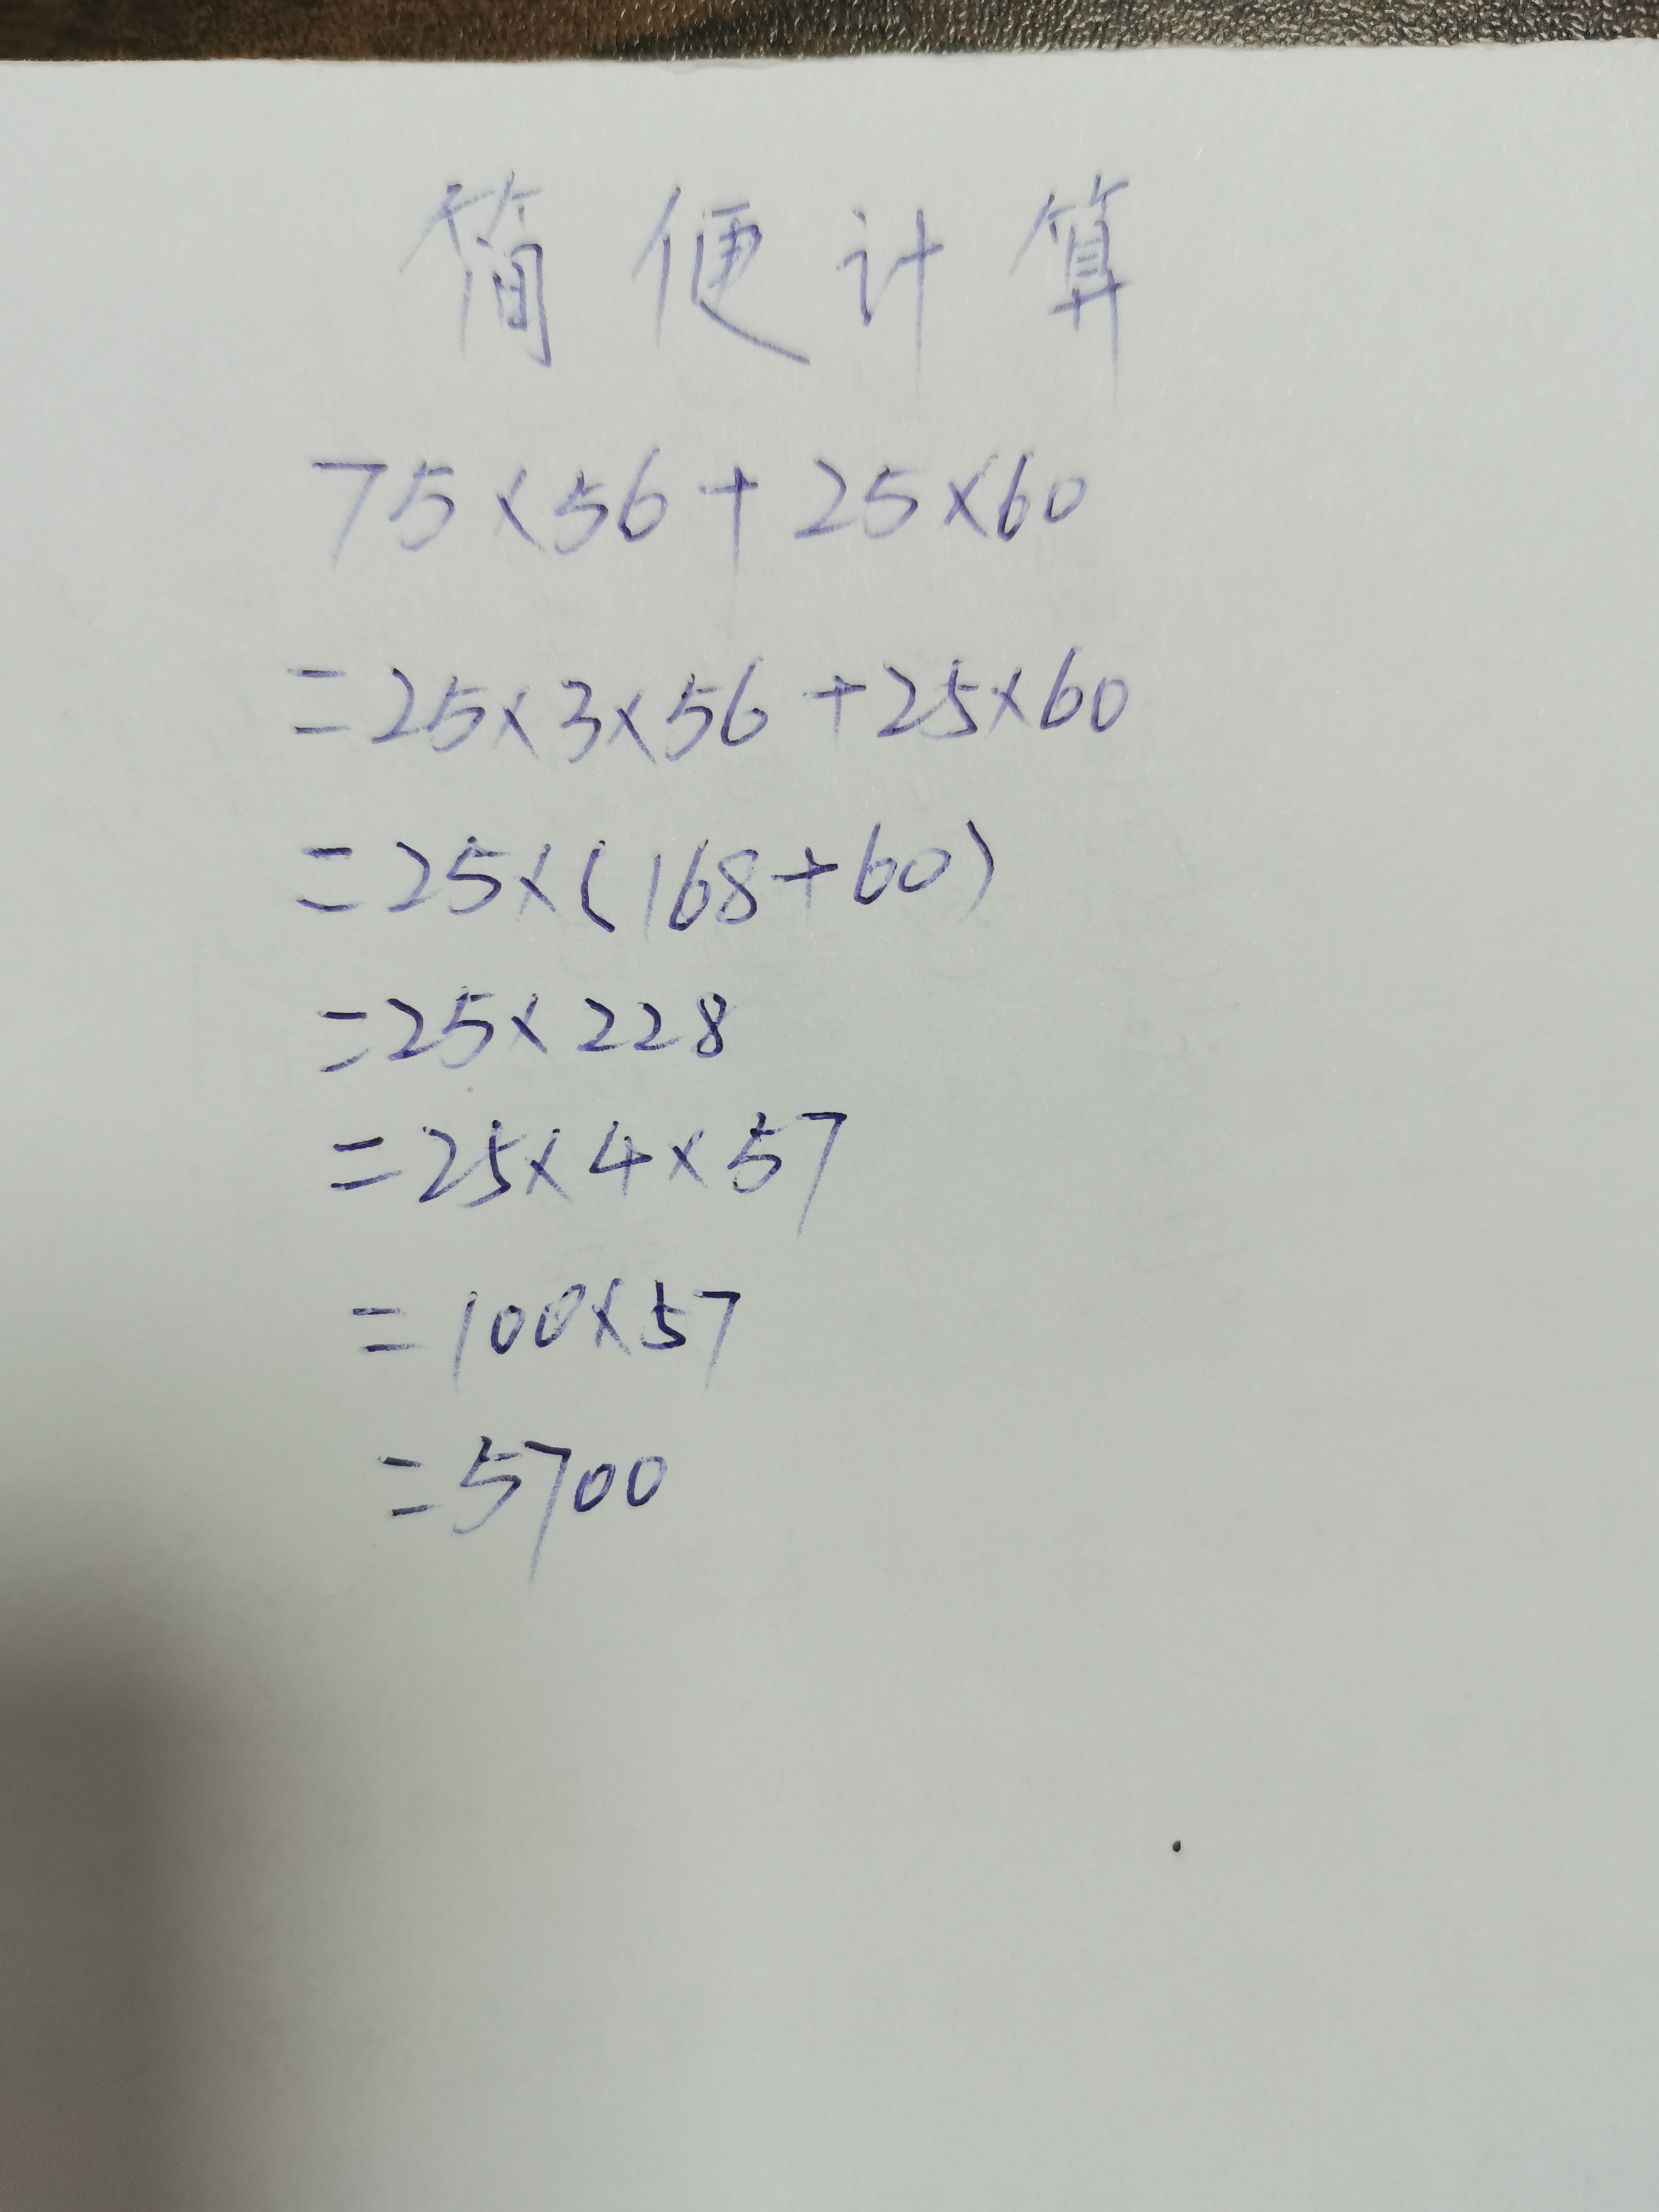 简便计算
75×56+25×60
=25×3×56+25×60
=25×(168+60)
=25×228
=25×4×57
=100×57
=5700